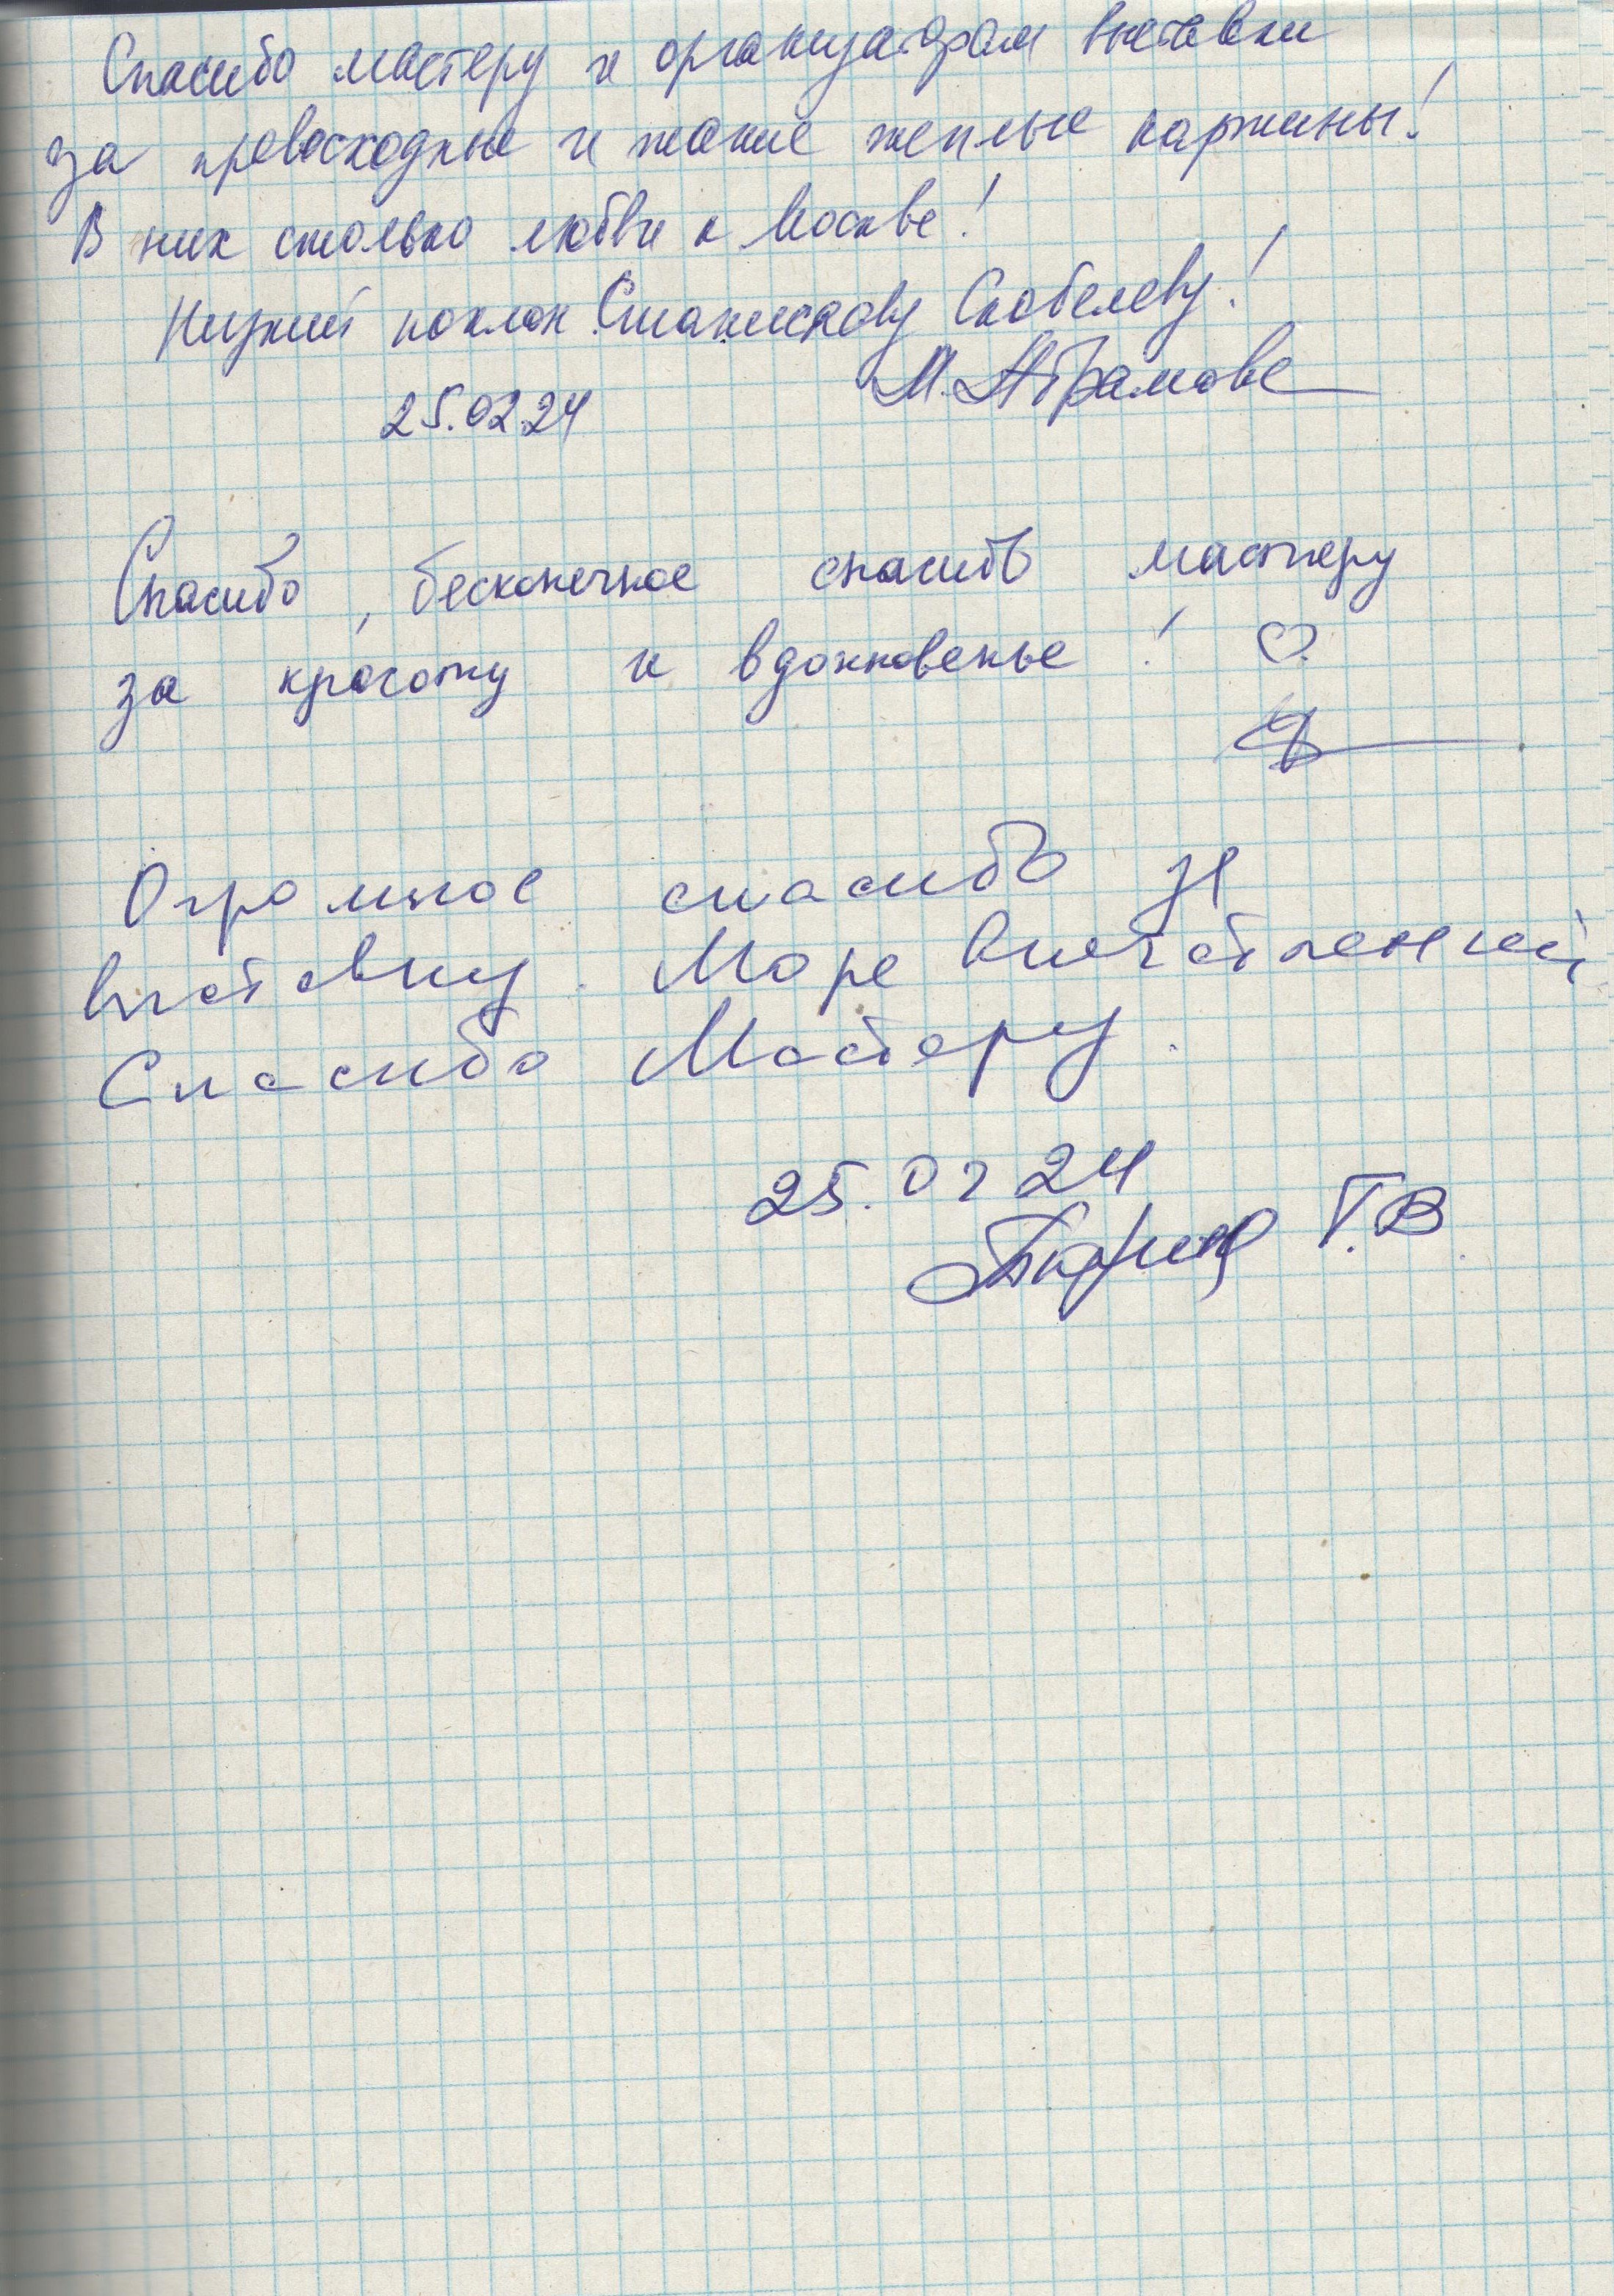 Спасибо мастеру и организаторам выставки
за превосходные и такие теплые картины!
В них столько любви к Москве!
Низкий поклон Станиславу Скобелеву!
М. Абрамова
25.02.24
Спасибо, бесконечное спасибо мастеру
за красоту и вдохновенье! ♡
Огромное спасибо за
выставку. Море впечатлений,
Спасибо Мастеру.
25.02 24
Т.В.